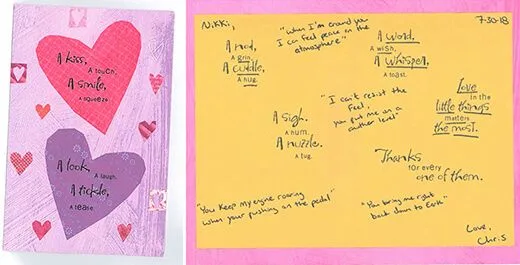 A kiss,
A touch,
A smile,
A squeeze.
A look,
A laugh.
A tickle,
A tease.
Nikki,
7-30-18
"when I'm around you
I can feel peace in the
atmosphere"
A nod,
A grin.
A cuddle,
A hug.
A word,
A wish.
A whisper,
A toast.
"I can't resist the
feel,
you put me on a
another level"
A sigh.
A hum.
A nuzzle.
A tug.
Love
in the
little things
matters
the most.
Thanks
for every
one of them.
"You keep my engine roaring
when your pushing on the pedal"
"You bring me right
back down to Earth"
Love,
Chris